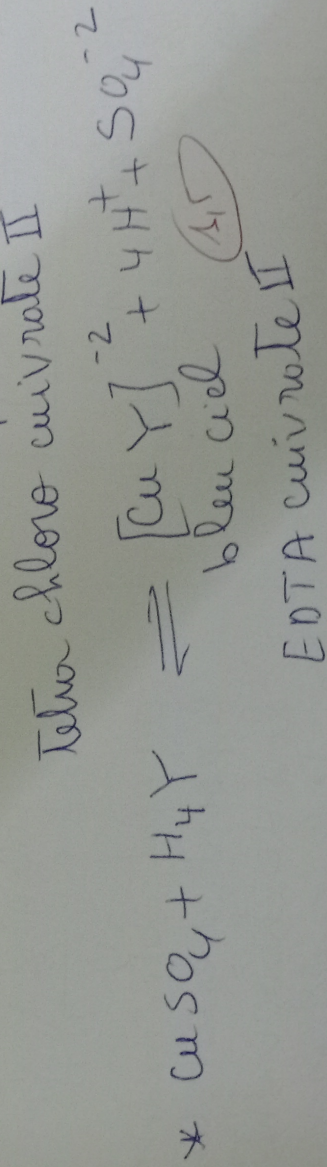 Tetra chloro cuivrate II
* CuSO₄ + H₄Y ⇌ [Cu Y]⁻² + 4H⁺ + SO₄⁻²
bleu ciel
EDTA cuivrate II